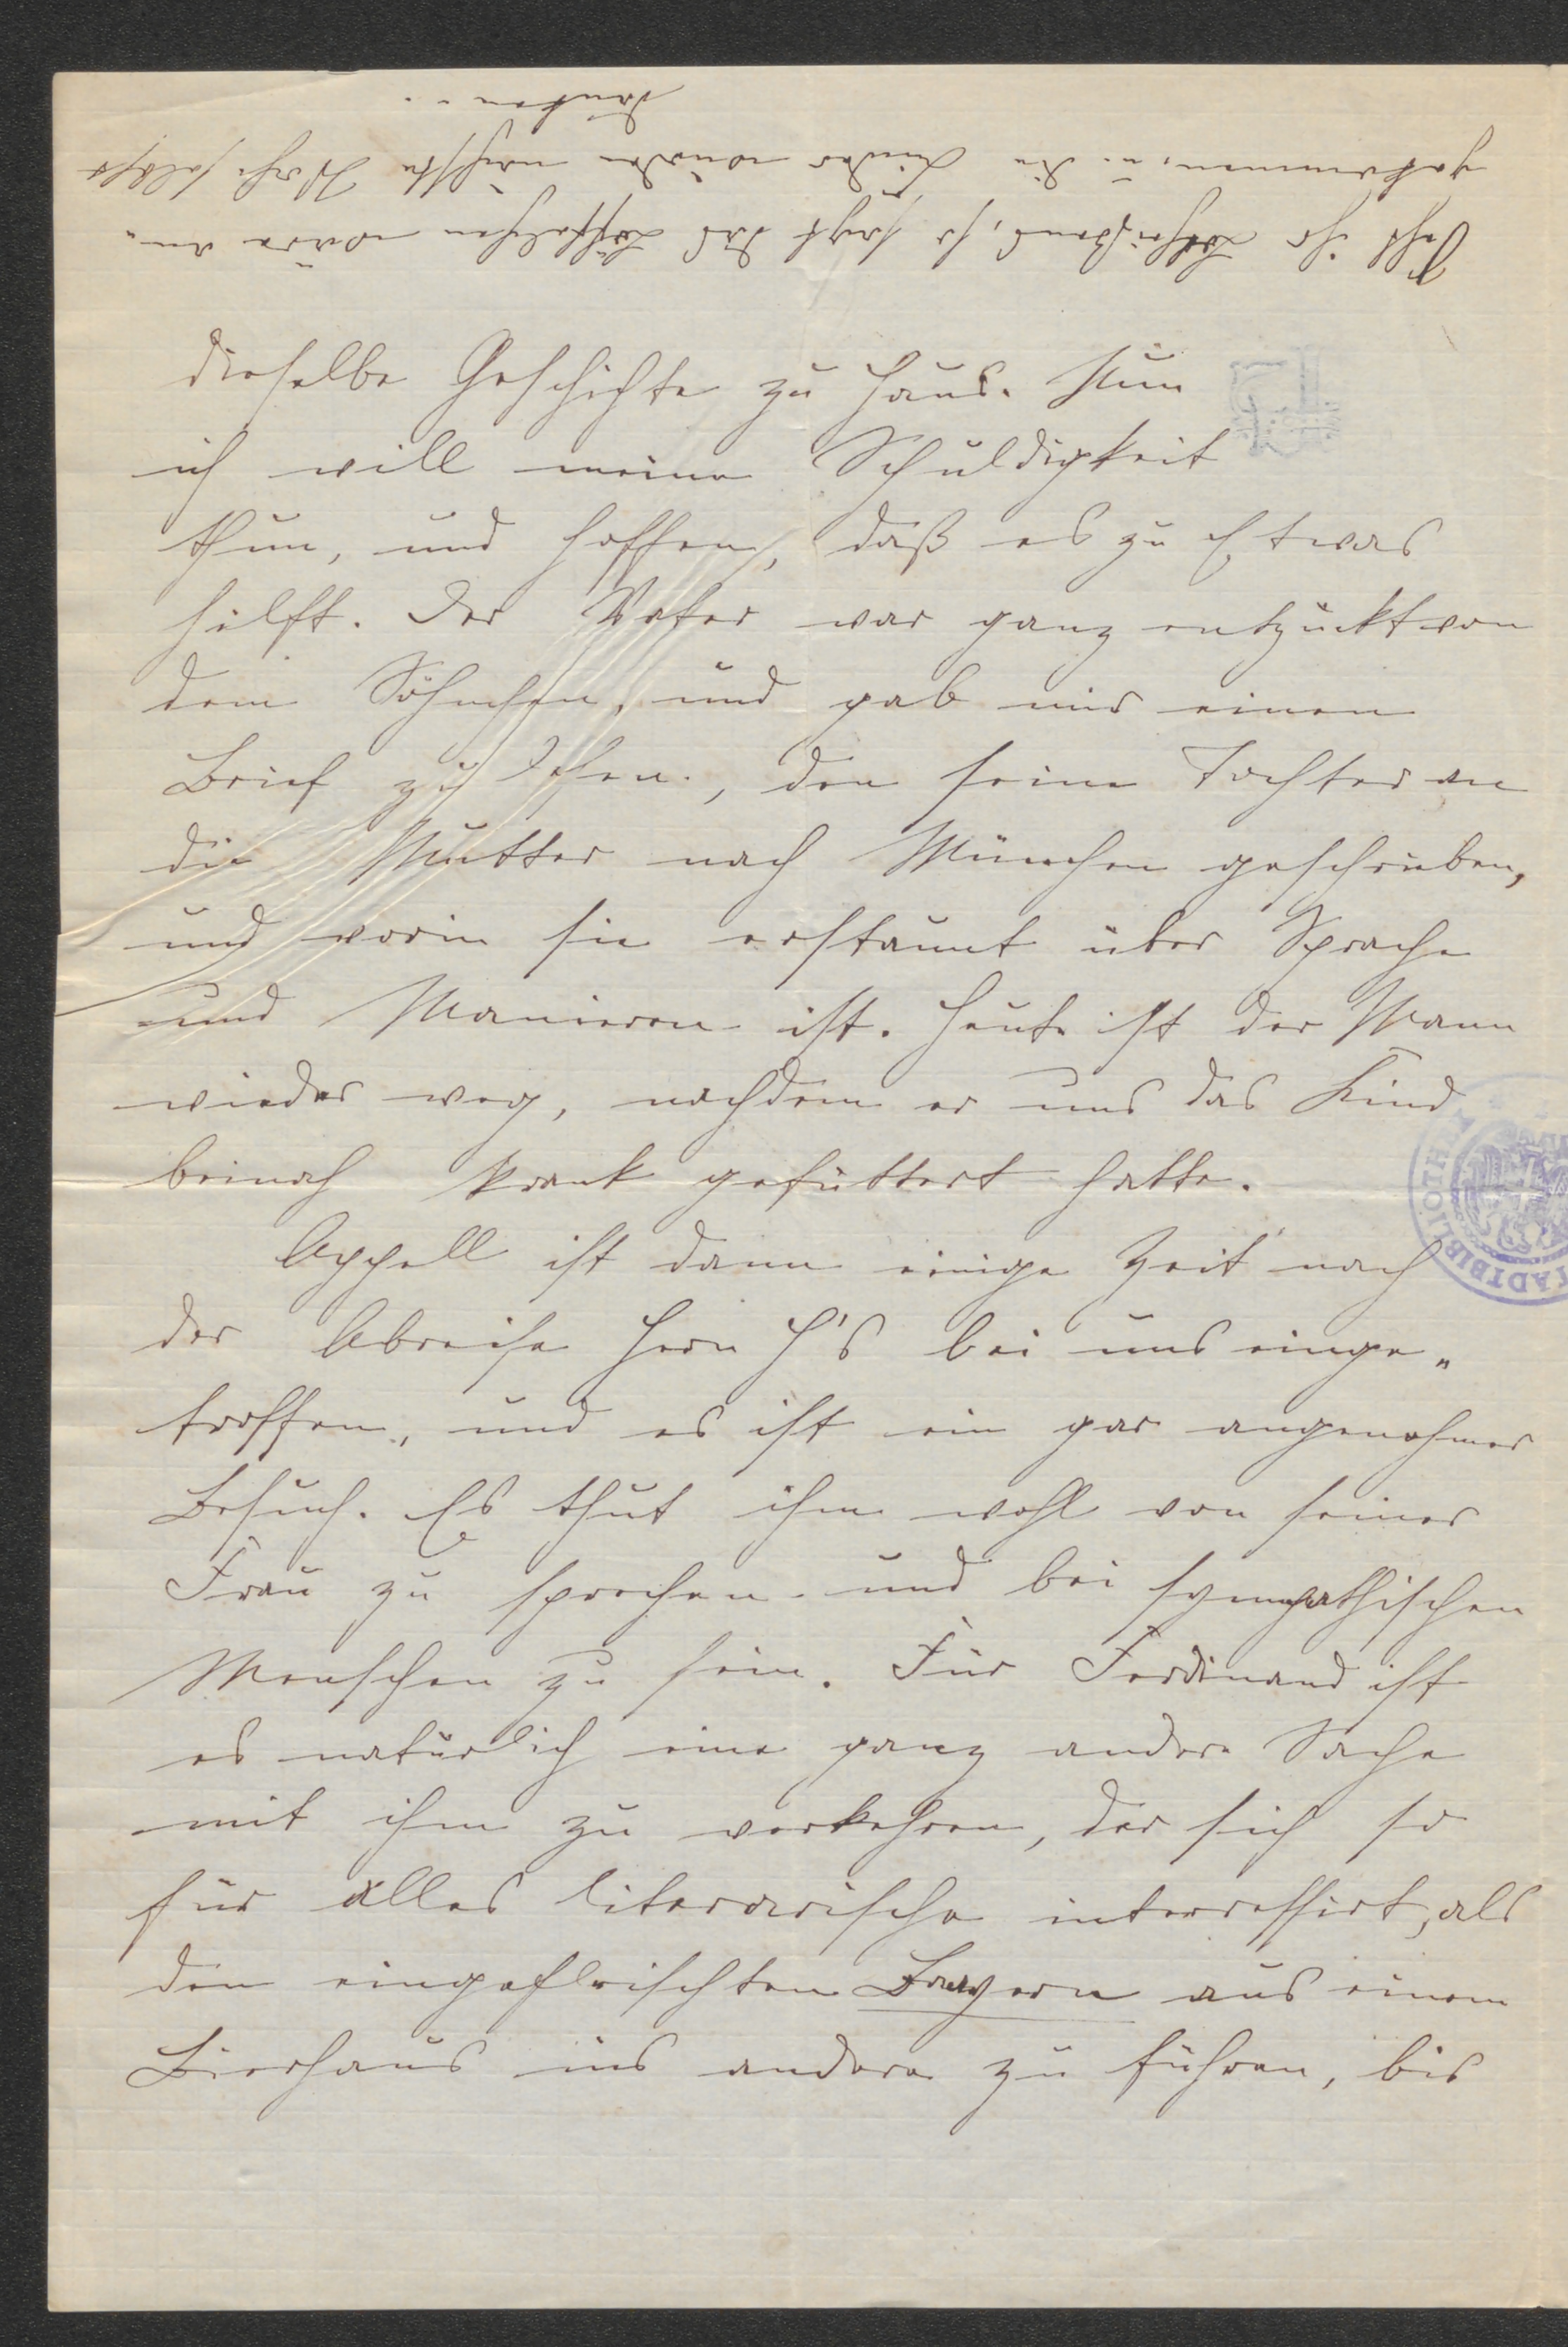 Seht ihr Lothrißens, so sagt das Täßchelchen wäre an-
gekommen, u. die Kinder würden nächste Woche selbst
danken...
dieselbe Geschichte zu Haus. Nun
ich will meine Schuldigkeit
thun, und hoffen, daß es zu Etwas
hilft. Der Vater war ganz entzückt von
dem Söhnchen, und gab mir einen
Brief zu lesen, den seine Tochter an
die Mutter nach München geschrieben,
und worin sie erstaunt über Sprache
und Manieren ist. Heute ist der Mann
wieder weg, nachdem er uns das Kind
beinah krank gefüttert hatte.
Appell ist dann einige Zeit nach
der Abreise Hern H's bei uns einge„
troffen, und es ist ein gar angenehmer
Besuch. Es thut ihm wohl von seiner
Frau zu sprechen und bei sympathischen
Menschen zu sein. Für Ferdinand ist
es natürlich eine ganz andere Sache
mit ihm zu verkehren, der sich so
für alles literarische interressirt, als
den eingefleischten Bayern aus einem
Bierhaus ins andere zu führen, bis
STADTBIBLIOTHEK